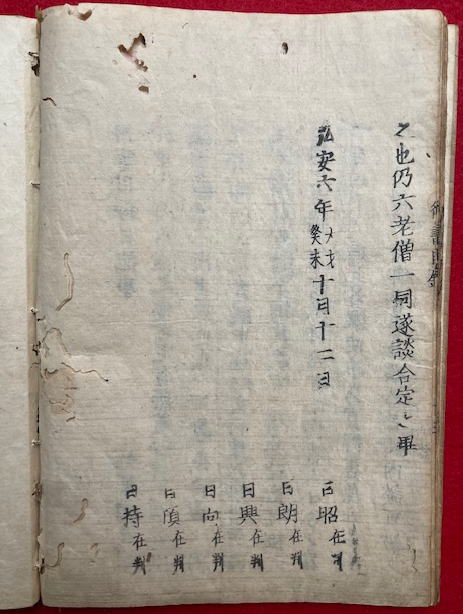 之也仍六老僧一同遂談合定之畢
弘安六年癸未十月十二日
日昭在判
日朗在判
日興在判
日向在判
日頂在判
日持在判